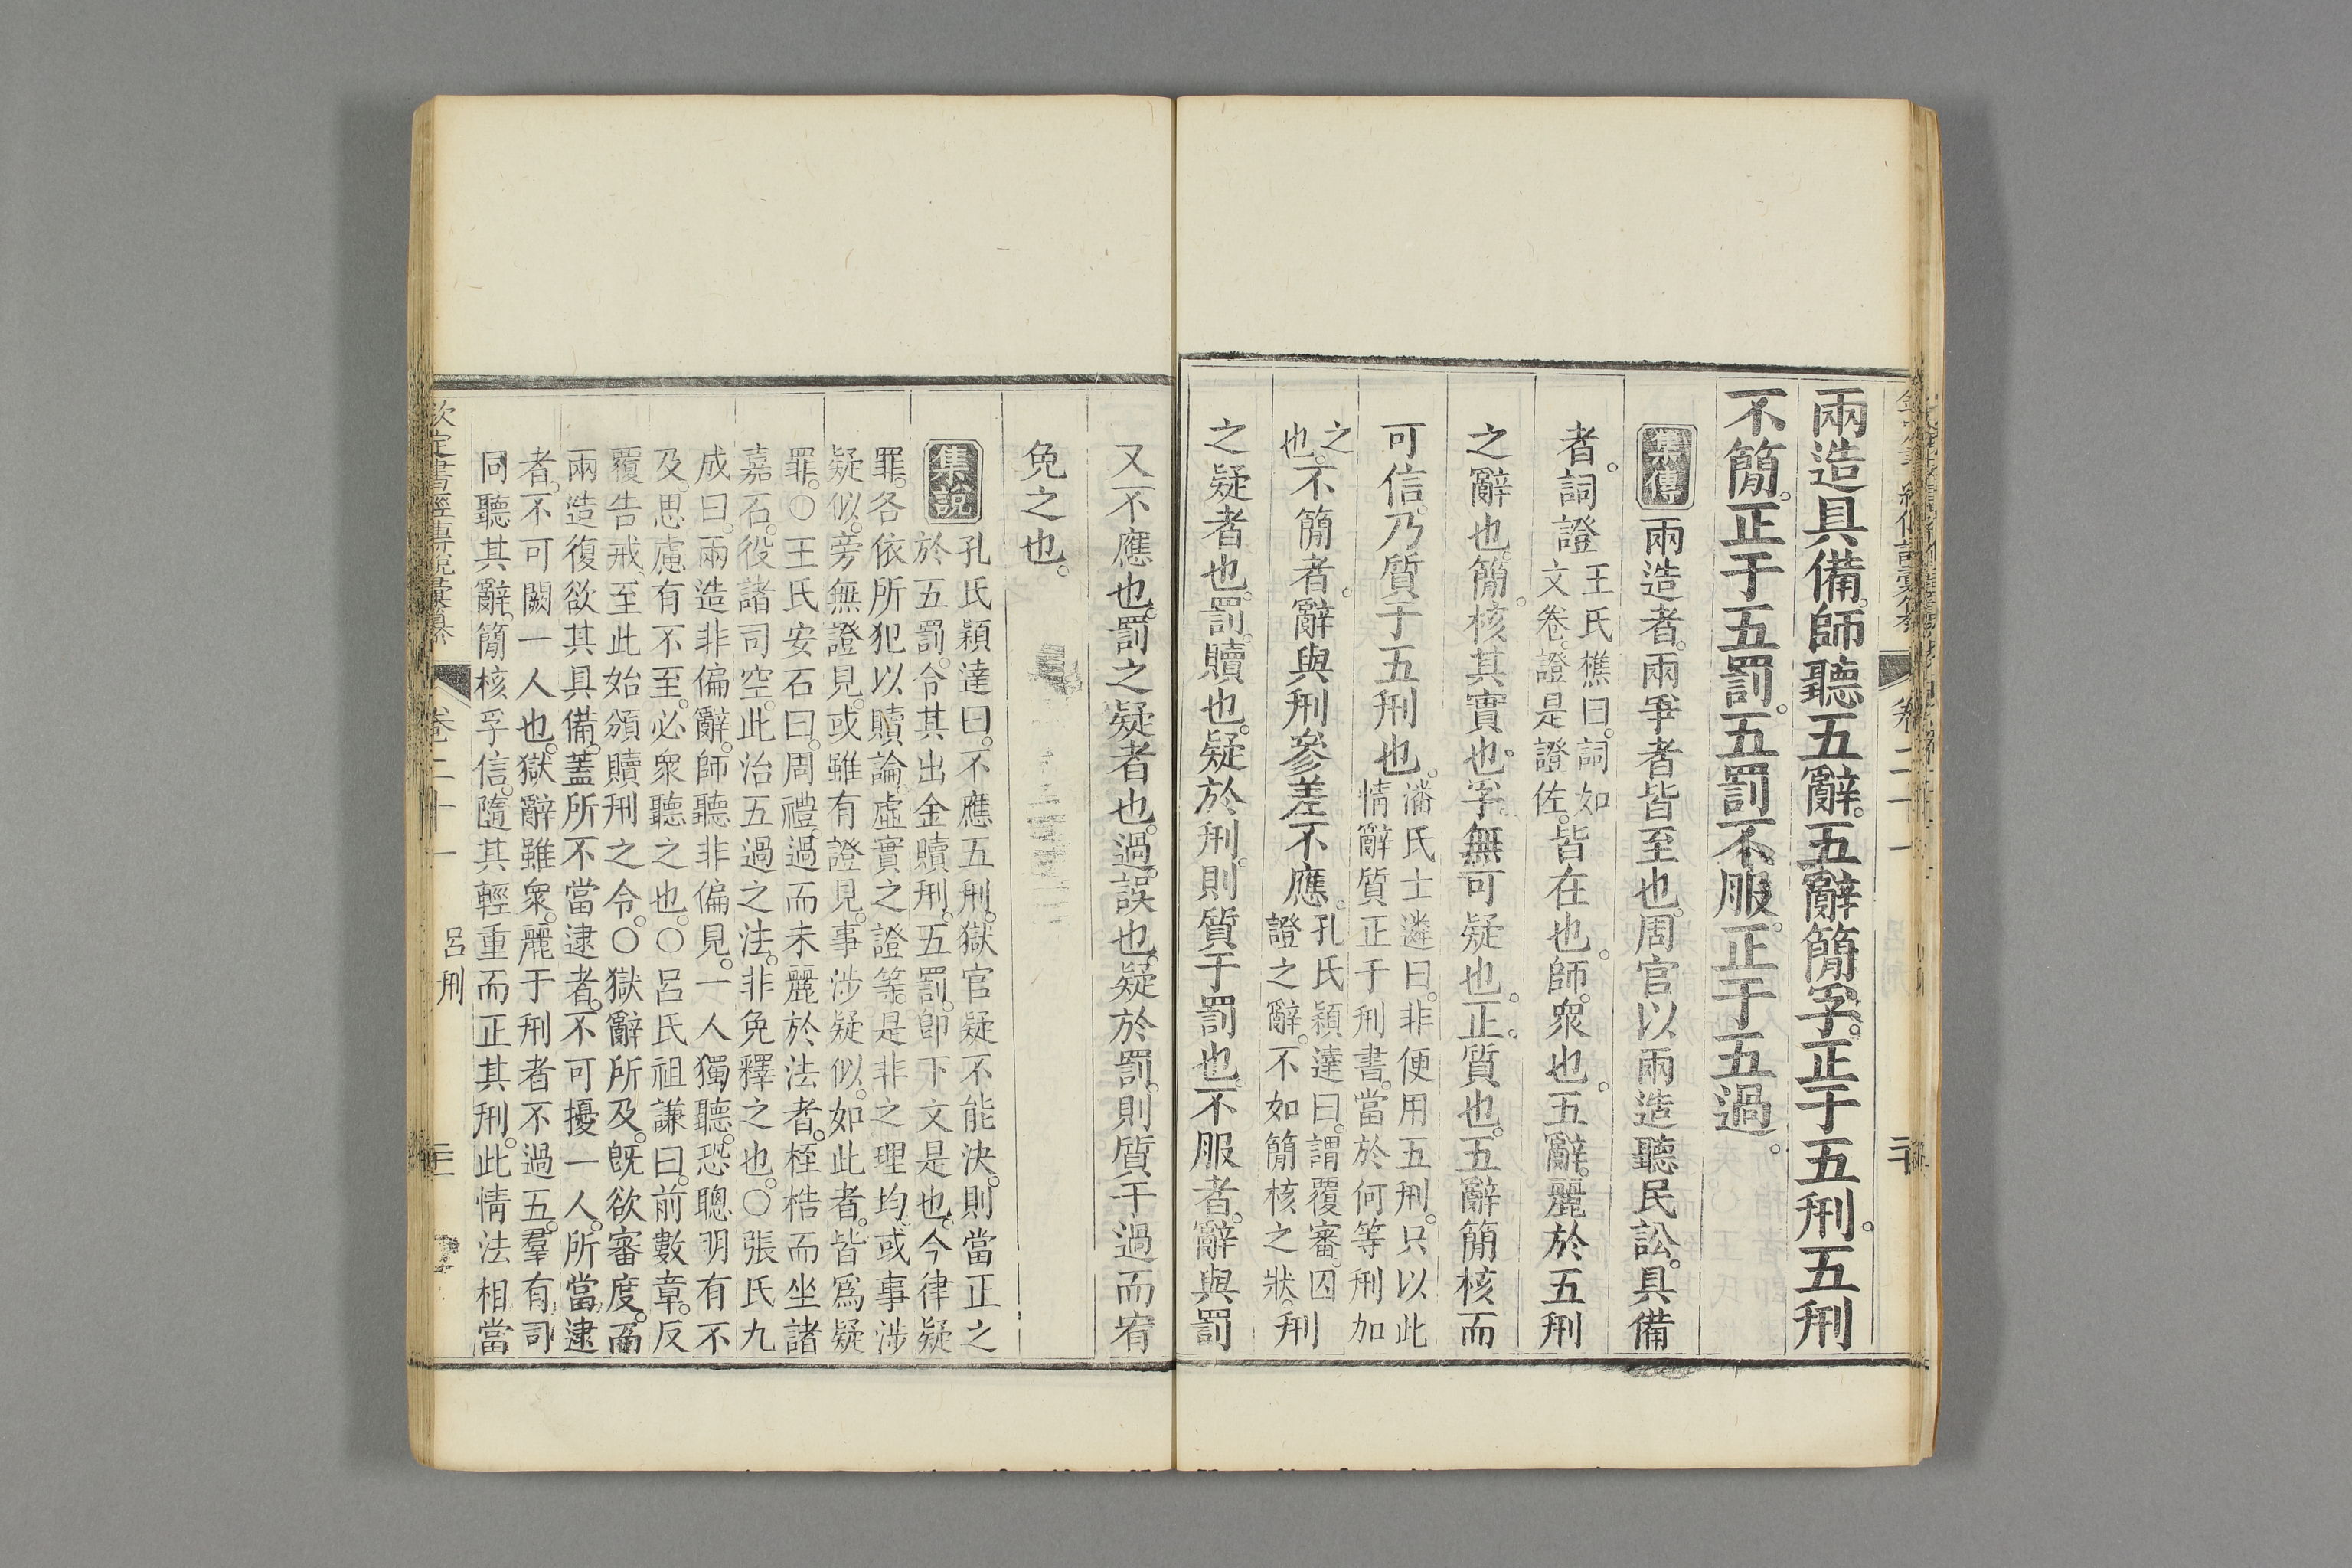 兩造具備。師聽五辭。五辭簡孚。正于五刑。五刑
不簡。正于五罰。五罰不服。正于五過。
集傳 兩造者。兩爭者皆至也。周官以兩造聽民訟。具備
者。詞證王氏樵曰。詞如文卷。證是證佐。皆在也。師。衆也。五辭。麗於五刑
之辭也。簡。核其實也。孚。無可疑也。正。質也。五辭簡核而
可信。乃質于五刑也。潘氏士遴曰。非便用五刑。只以此情辭質正于刑書。當於何等刑加
之也。不簡者。辭與刑參差不應。孔氏穎達曰。謂覆審囚證之辭。不如簡核之狀。刑
之疑者也。罰。贖也。疑於刑。則質于罰也。不服者。辭與罰
又不應也。罰之疑者也。過。誤也。疑於罰。則質于過而宥
免之也。
集說 孔氏穎達曰。不應五刑。獄官疑不能決。則當正之
於五罰。令其出金贖刑。五罰。卽下文是也。今律疑
罪。各依所犯以贖論。虛實之證等。是非之理均。或事涉
疑似。旁無證見。或雖有證見。事涉疑似。如此者。皆爲疑
罪。○王氏安石曰。周禮。過而未麗於法者。桎梏而坐諸
嘉石。役諸司空。此治五過之法。非免釋之也。○張氏九
成曰。兩造非偏辭。師聽非偏見。一人獨聽。恐聰明有不
及。思慮有不至。必衆聽之也。○呂氏祖謙曰。前數章。反
覆告戒。至此始頒贖刑之令。○獄辭所及。旣欲審度。而
兩造復欲其具備。蓋所不當逮者。不可擾一人。所當逮
者。不可闕一人也。獄辭雖衆。麗于刑者不過五。羣有司
同聽其辭。簡核孚信。隨其輕重而正其刑。此情法相當
欽定書經傳說彙纂 卷二十一 呂刑